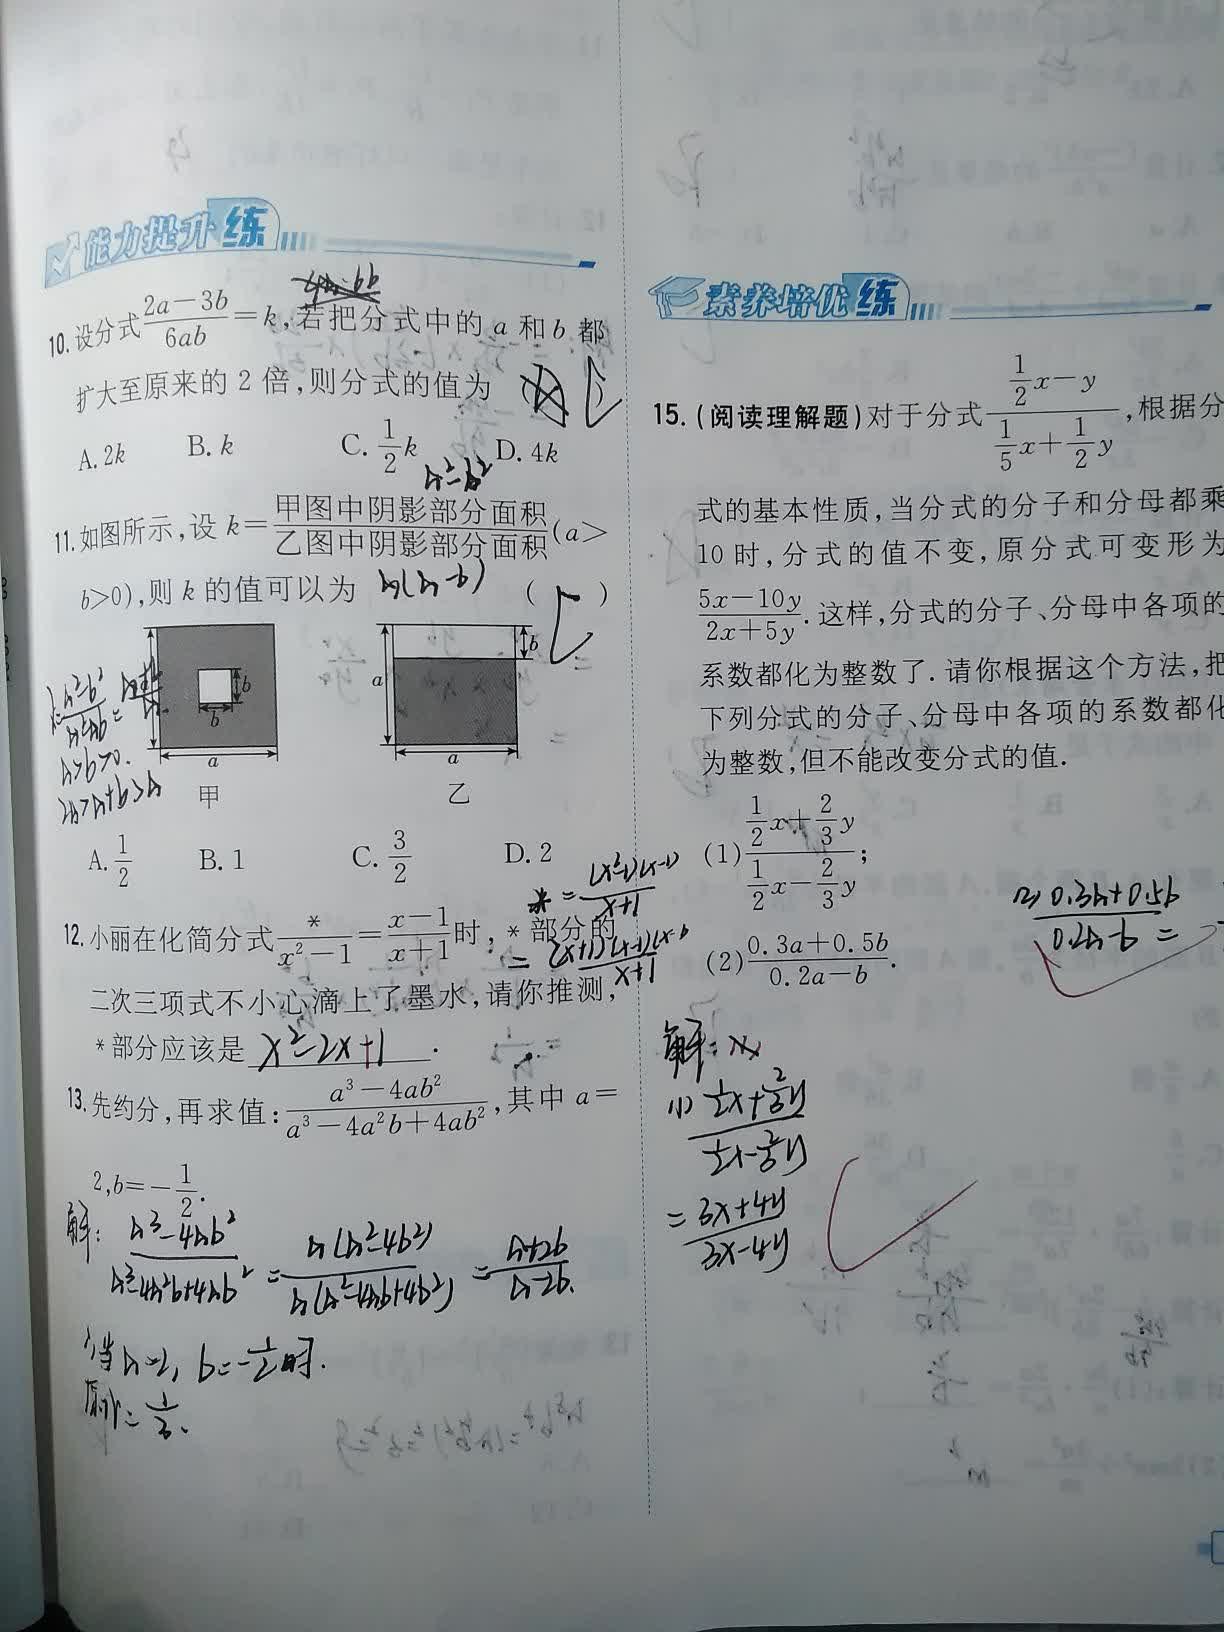 能力提升练
10.设分式\frac{2a-3b}{6ab}=k,若把分式中的a和b都
扩大至原来的2倍,则分式的值为 ( C )
A.2k B.k C.\frac{1}{2}k D.4k
a²-b²
11.如图所示,设k=\frac{甲图中阴影部分面积}{乙图中阴影部分面积}(a>
b>0),则k的值可以为 a(a-b) ( C )
a b b 甲
a b a 乙
a>b>0.
2a>a+b>a
A.\frac{1}{2} B.1 C.\frac{3}{2} D.2
*=\frac{(x²-1)(x-1)}{x+1}
12.小丽在化简分式\frac{*}{x²-1}=\frac{x-1}{x+1}时,*部分的
=\frac{(x+1)(x-1)(x-1)}{x+1}
二次三项式不小心滴上了墨水,请你推测,
*部分应该是 x²-2x+1 .
13.先约分,再求值:\frac{a³-4ab²}{a³-4a²b+4ab²},其中a=
2,b=-\frac{1}{2}.
解:\frac{a³-4ab²}{a³-4a²b+4ab²}=\frac{a(a²-4b²)}{a(a²-4ab+4b²)}=\frac{a+2b}{a-2b}.
当a=2,b=-\frac{1}{2}时.
原式=\frac{1}{3}.
素养培优练
15.(阅读理解题)对于分式\frac{\frac{1}{2}x-y}{\frac{1}{5}x+\frac{1}{2}y},根据分
式的基本性质,当分式的分子和分母都乘
10时,分式的值不变,原分式可变形为
\frac{5x-10y}{2x+5y}.这样,分式的分子、分母中各项的
系数都化为整数了.请你根据这个方法,把
下列分式的分子、分母中各项的系数都化
为整数,但不能改变分式的值.
(1)\frac{\frac{1}{2}x+\frac{2}{3}y}{\frac{1}{2}x-\frac{2}{3}y};
(2)\frac{0.3a+0.5b}{0.2a-b}.
(2)\frac{0.3a+0.5b}{0.2a-b}=
解:
(1)\frac{\frac{1}{2}x+\frac{2}{3}y}{\frac{1}{2}x-\frac{2}{3}y}
=\frac{3x+4y}{3x-4y}